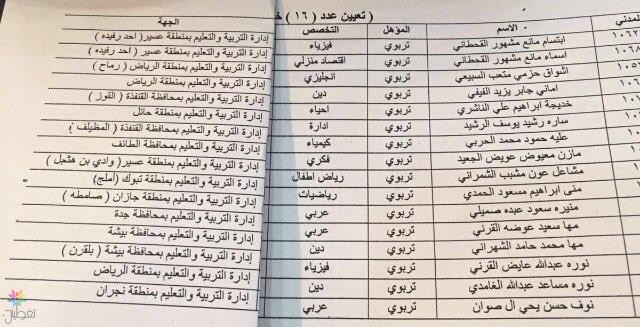 ( تعيين عدد ( ١٦ )
المدني الاسم المؤهل التخصص الجهة
ابتسام مانع مشهور القحطاني تربوي فيزياء إدارة التربية والتعليم بمنطقة عسير( احد رفيده )
اسماء مانع مشهور القحطاني تربوي اقتصاد منزلي إدارة التربية والتعليم بمنطقة عسير ( احد رفيده )
اشواق حزمي متعب السبيعي تربوي انجليزي إدارة التربية والتعليم بمنطقة الرياض ( رماح )
اماني جابر يزيد الفيفي تربوي دين إدارة التربية والتعليم بمنطقة الرياض
خديجة ابراهيم علي الناشري تربوي احياء إدارة التربية والتعليم بمحافظة القنفذة ( القوز )
ساره رشيد يوسف الرشيد تربوي ادارة إدارة التربية والتعليم بمنطقة حائل
عليه حمود محمد الحربي تربوي كيمياء إدارة التربية والتعليم بمحافظة القنفذة ( المظيلف )
مازن معيوض عويض الجعيد تربوي فكري إدارة التربية والتعليم بمحافظة الطائف
مشاعل عون مشبب الشمراني تربوي رياض اطفال إدارة التربية والتعليم بمنطقة عسير( وادي بن هشبل )
منى ابراهيم مسعود الحمدي تربوي رياضيات إدارة التربية والتعليم بمنطقة تبوك ( املج)
منيره سعود عبده صميلي تربوي عربي إدارة التربية والتعليم بمنطقة جازان ( صامطه )
مها سعيد عوضه القرني تربوي عربي إدارة التربية والتعليم بمحافظة جدة
مها محمد حامد الشهراني تربوي دين إدارة التربية والتعليم بمحافظة بيشة
نوره عبدالله عايض القرني تربوي فيزياء إدارة التربية والتعليم بمحافظة بيشة ( بلقرن )
نوره مساعد عبدالله الغامدي تربوي دين إدارة التربية والتعليم بمنطقة الرياض
نوف حسن يحي ال صوان تربوي عربي إدارة التربية والتعليم بمنطقة نجران